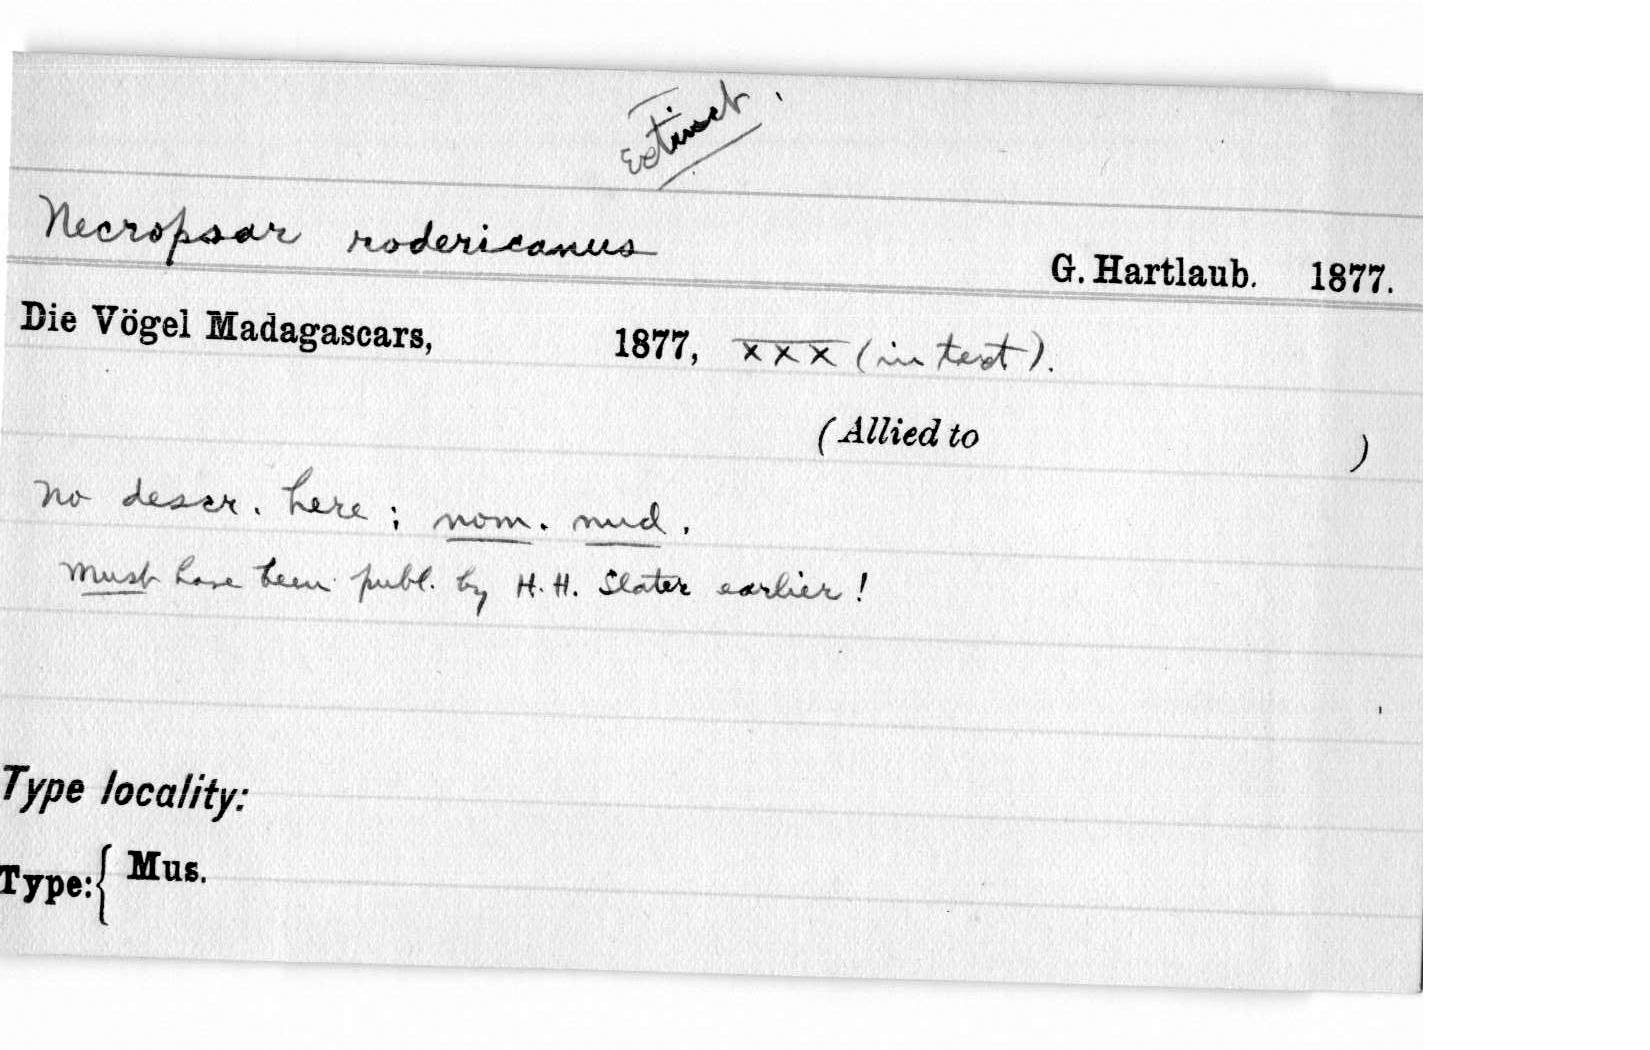 Extinct.
Necropsar rodericanus G. Hartlaub. 1877.
Die Vögel Madagascars, 1877, xxx (in text).
(Allied to )
No descr. here; nom. nud.
Must have been publ. by H.H. Slater earlier!
Type locality:
Type: { Mus.